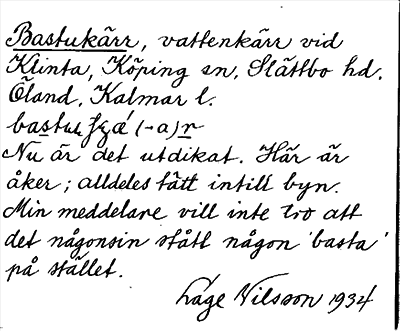 Bastukärr, vattenkärr vid
Klinta, Köping sn, Slättbo hd.
Öland, Kalmar l.
(-a)r
Nu är det utdikat. Här är
åker; alldeles tätt intill byn.
Min meddelare vill inte tro att
det någonsin stått någon 'basta'
på stället.
Låge Nilsson 1934